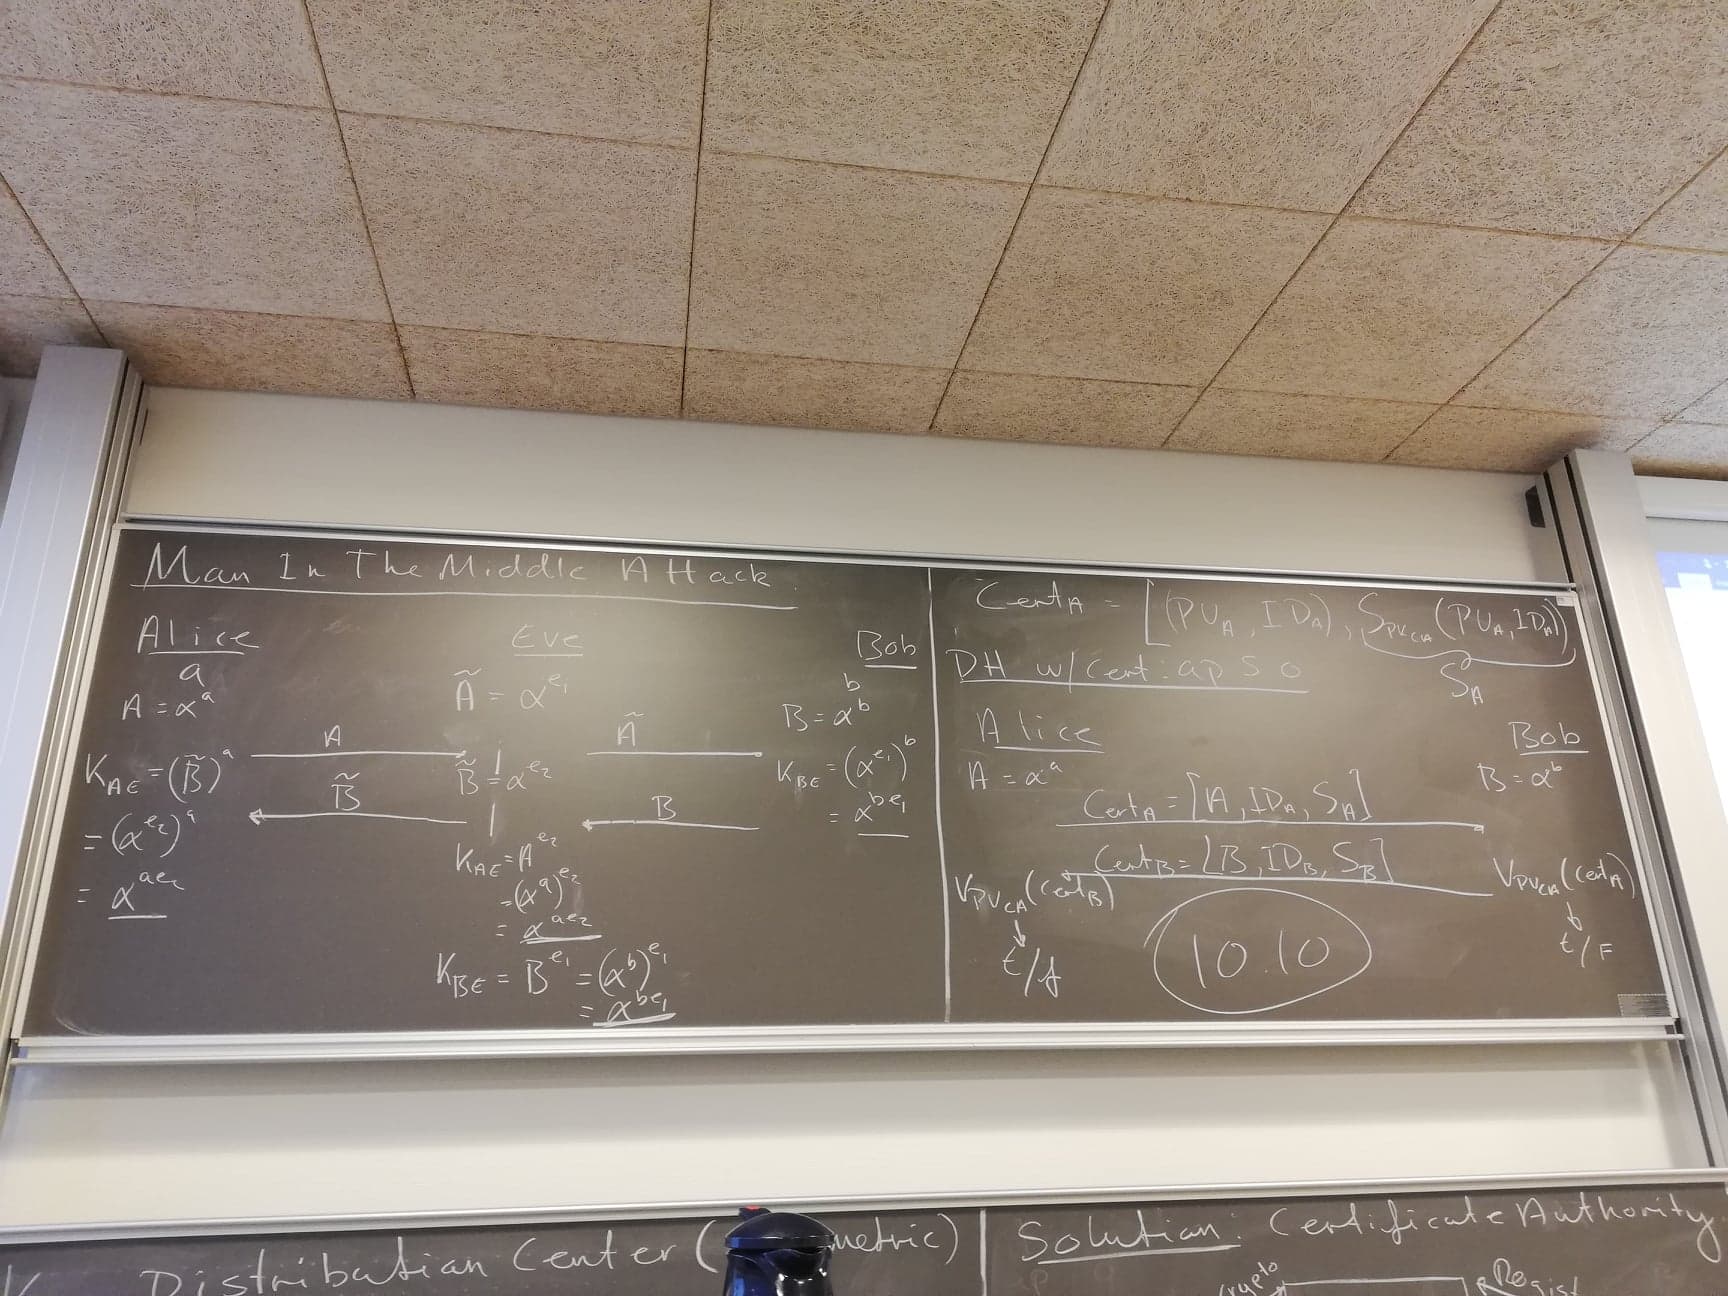 Man In The Middle Attack
Alice
a
A = α^a
K_AE = (B̃)^a
= (α^e₂)^a
= α^ae₂
A
B̃
Eve
Ã = α^e₁
B̃ = α^e₂
K_AE = A^e₂
= (α^a)^e₂
= α^ae₂
K_BE = B^e₁ = (α^b)^e₁
= α^be₁
Ã
B
Bob
b
B = α^b
K_BE = (α^e₁)^b
= α^be₁
Cert_A = [(PU_A, ID_A), S_PV_CA(PU_A, ID_A)]
S_A
DH w/ cert:
Alice
A = α^a
Bob
B = α^b
Cert_A = [A, ID_A, S_A]
Cert_B = [B, ID_B, S_B]
V_PU_CA(cert_B)
t/f
V_PU_CA(cert_A)
t/F
10.10
Distribution Center (
metric)
Solution: Certificate Authority